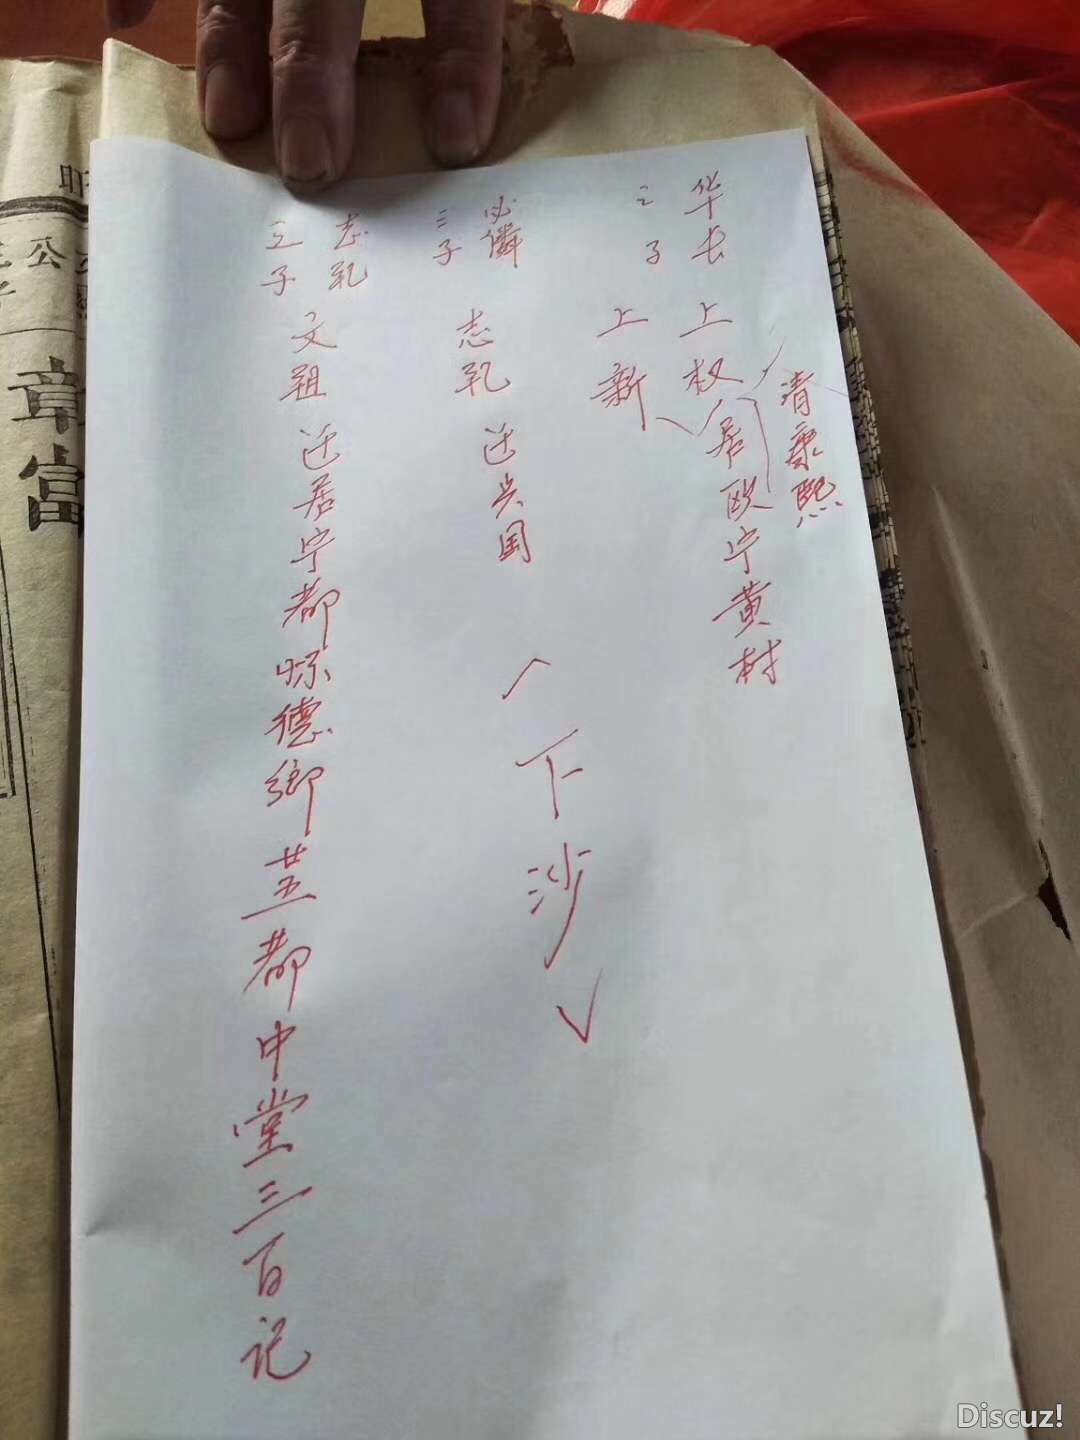 清康熙
华长
二子
上权
上新
居欧宁黄村
必儰
三子
志礼
迁兴国
下沙
志礼
三子
文祖
迁居宁都怀德乡廿五都中堂三百记
公
章富
Discuz!